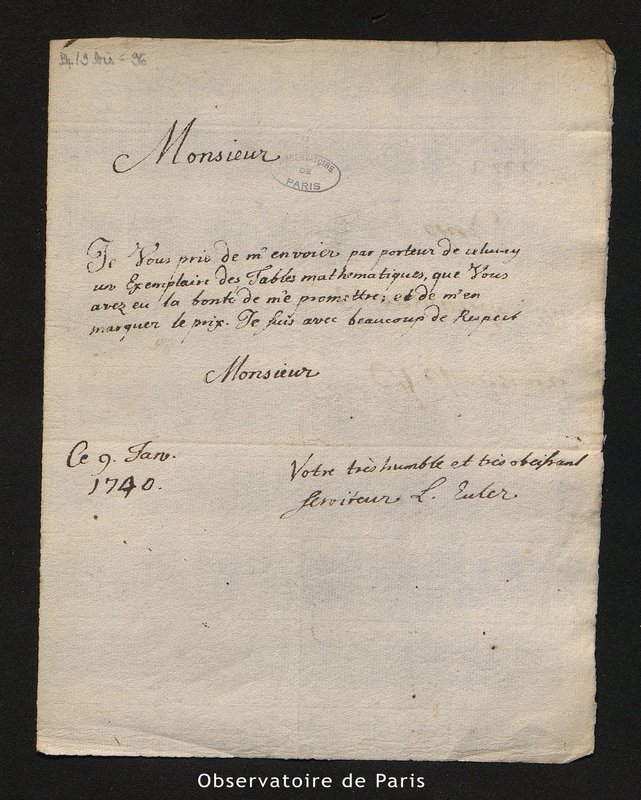 Monsieur
OBSERVATOIRE
DE
PARIS
Je Vous prie de m'envoier par porteur de celui-cy
un Exemplaire des Tables mathematiques, que Vous
avez eu la bonté de me promettre, et de m'en
marquer le prix. Je suis avec beaucoup de Respect
Monsieur
Ce 9. Janv.
1740.
Votre très humble et très obeissant
serviteur L. Euler.
Observatoire de Paris